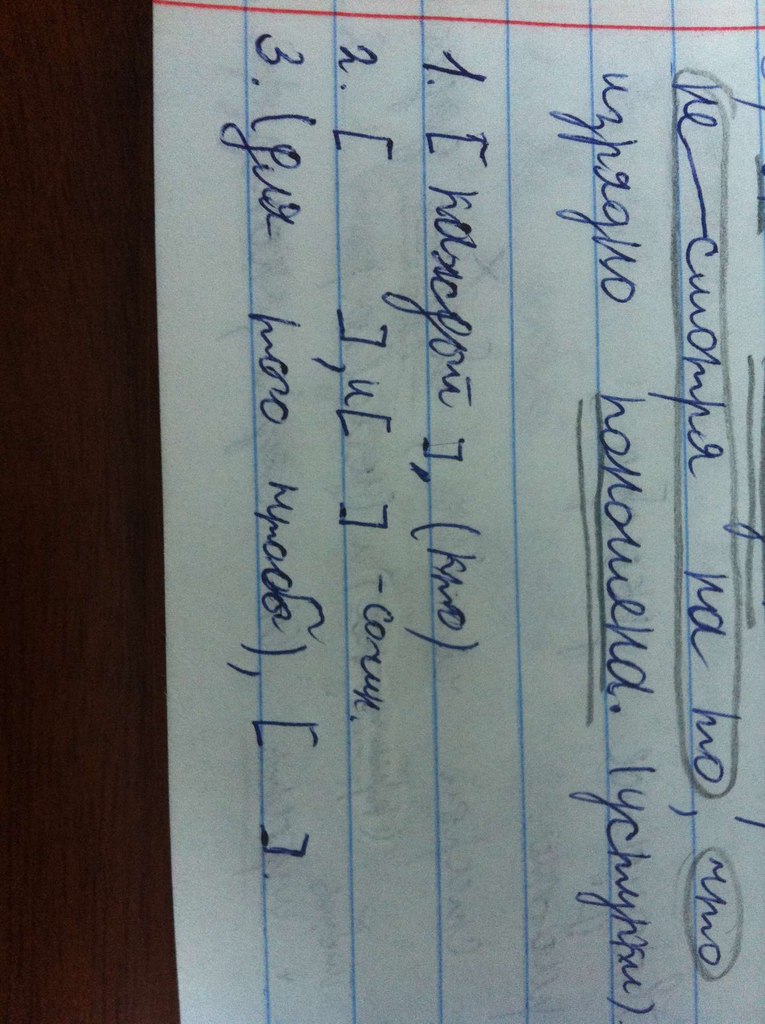 не смотря на то, что
изрядно поношена. (уступки).
1. [каждый], (кто)
2. [ ], и [ ] - сочин.
3. (для того чтобы), [ ].